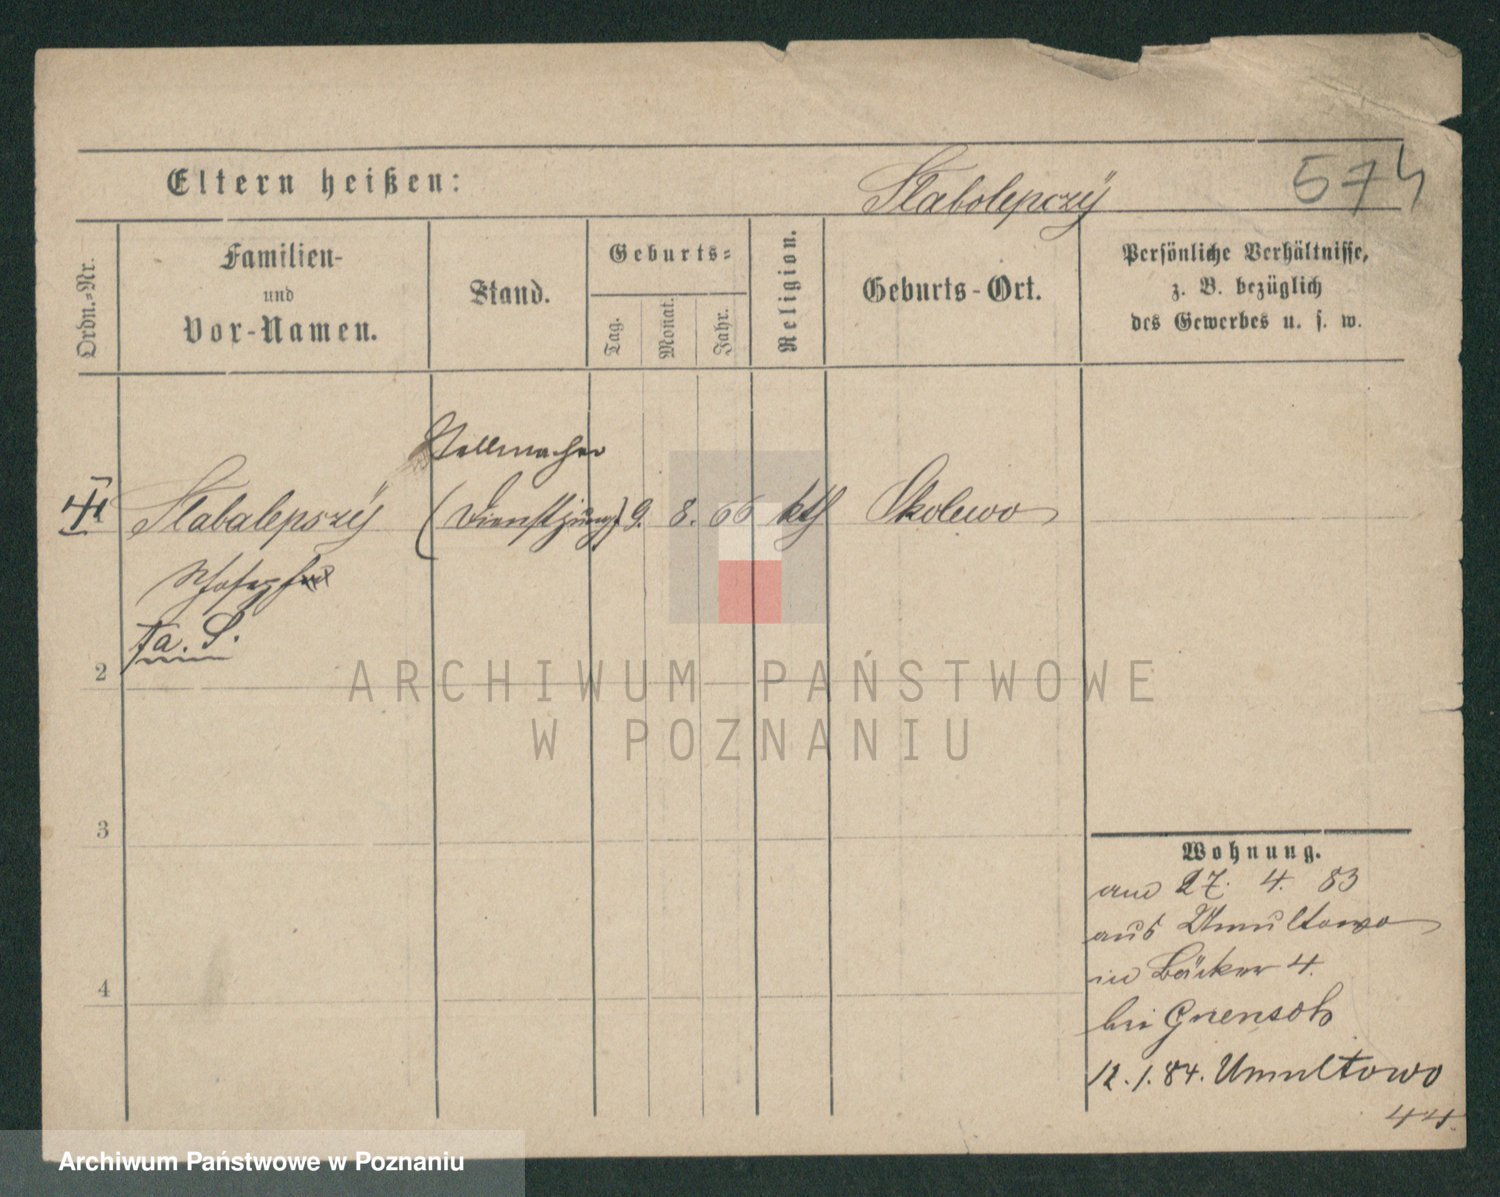 Eltern heißen:
Slabolepczÿ
574
Ordn.-Nr.
Familien-
und
Vor-Namen.
Stand.
Geburts-
Tag.
Monat.
Jahr.
Religion.
Geburts-Ort.
Persönliche Verhältnisse,
z. B. bezüglich
des Gewerbes u. s. w.
Stellmacher
Slabalepszÿ
(Dienstjunge)
9.
8.
66
kth
Skolewo
2
3
4
Wohnung.
am 27. 4. 83
aus Umultowo
in Bäcker 4.
bei
12.1.84. Umultowo
44.
ARCHIWUM PAŃSTWOWE
W POZNANIU
Archiwum Państwowe w Poznaniu